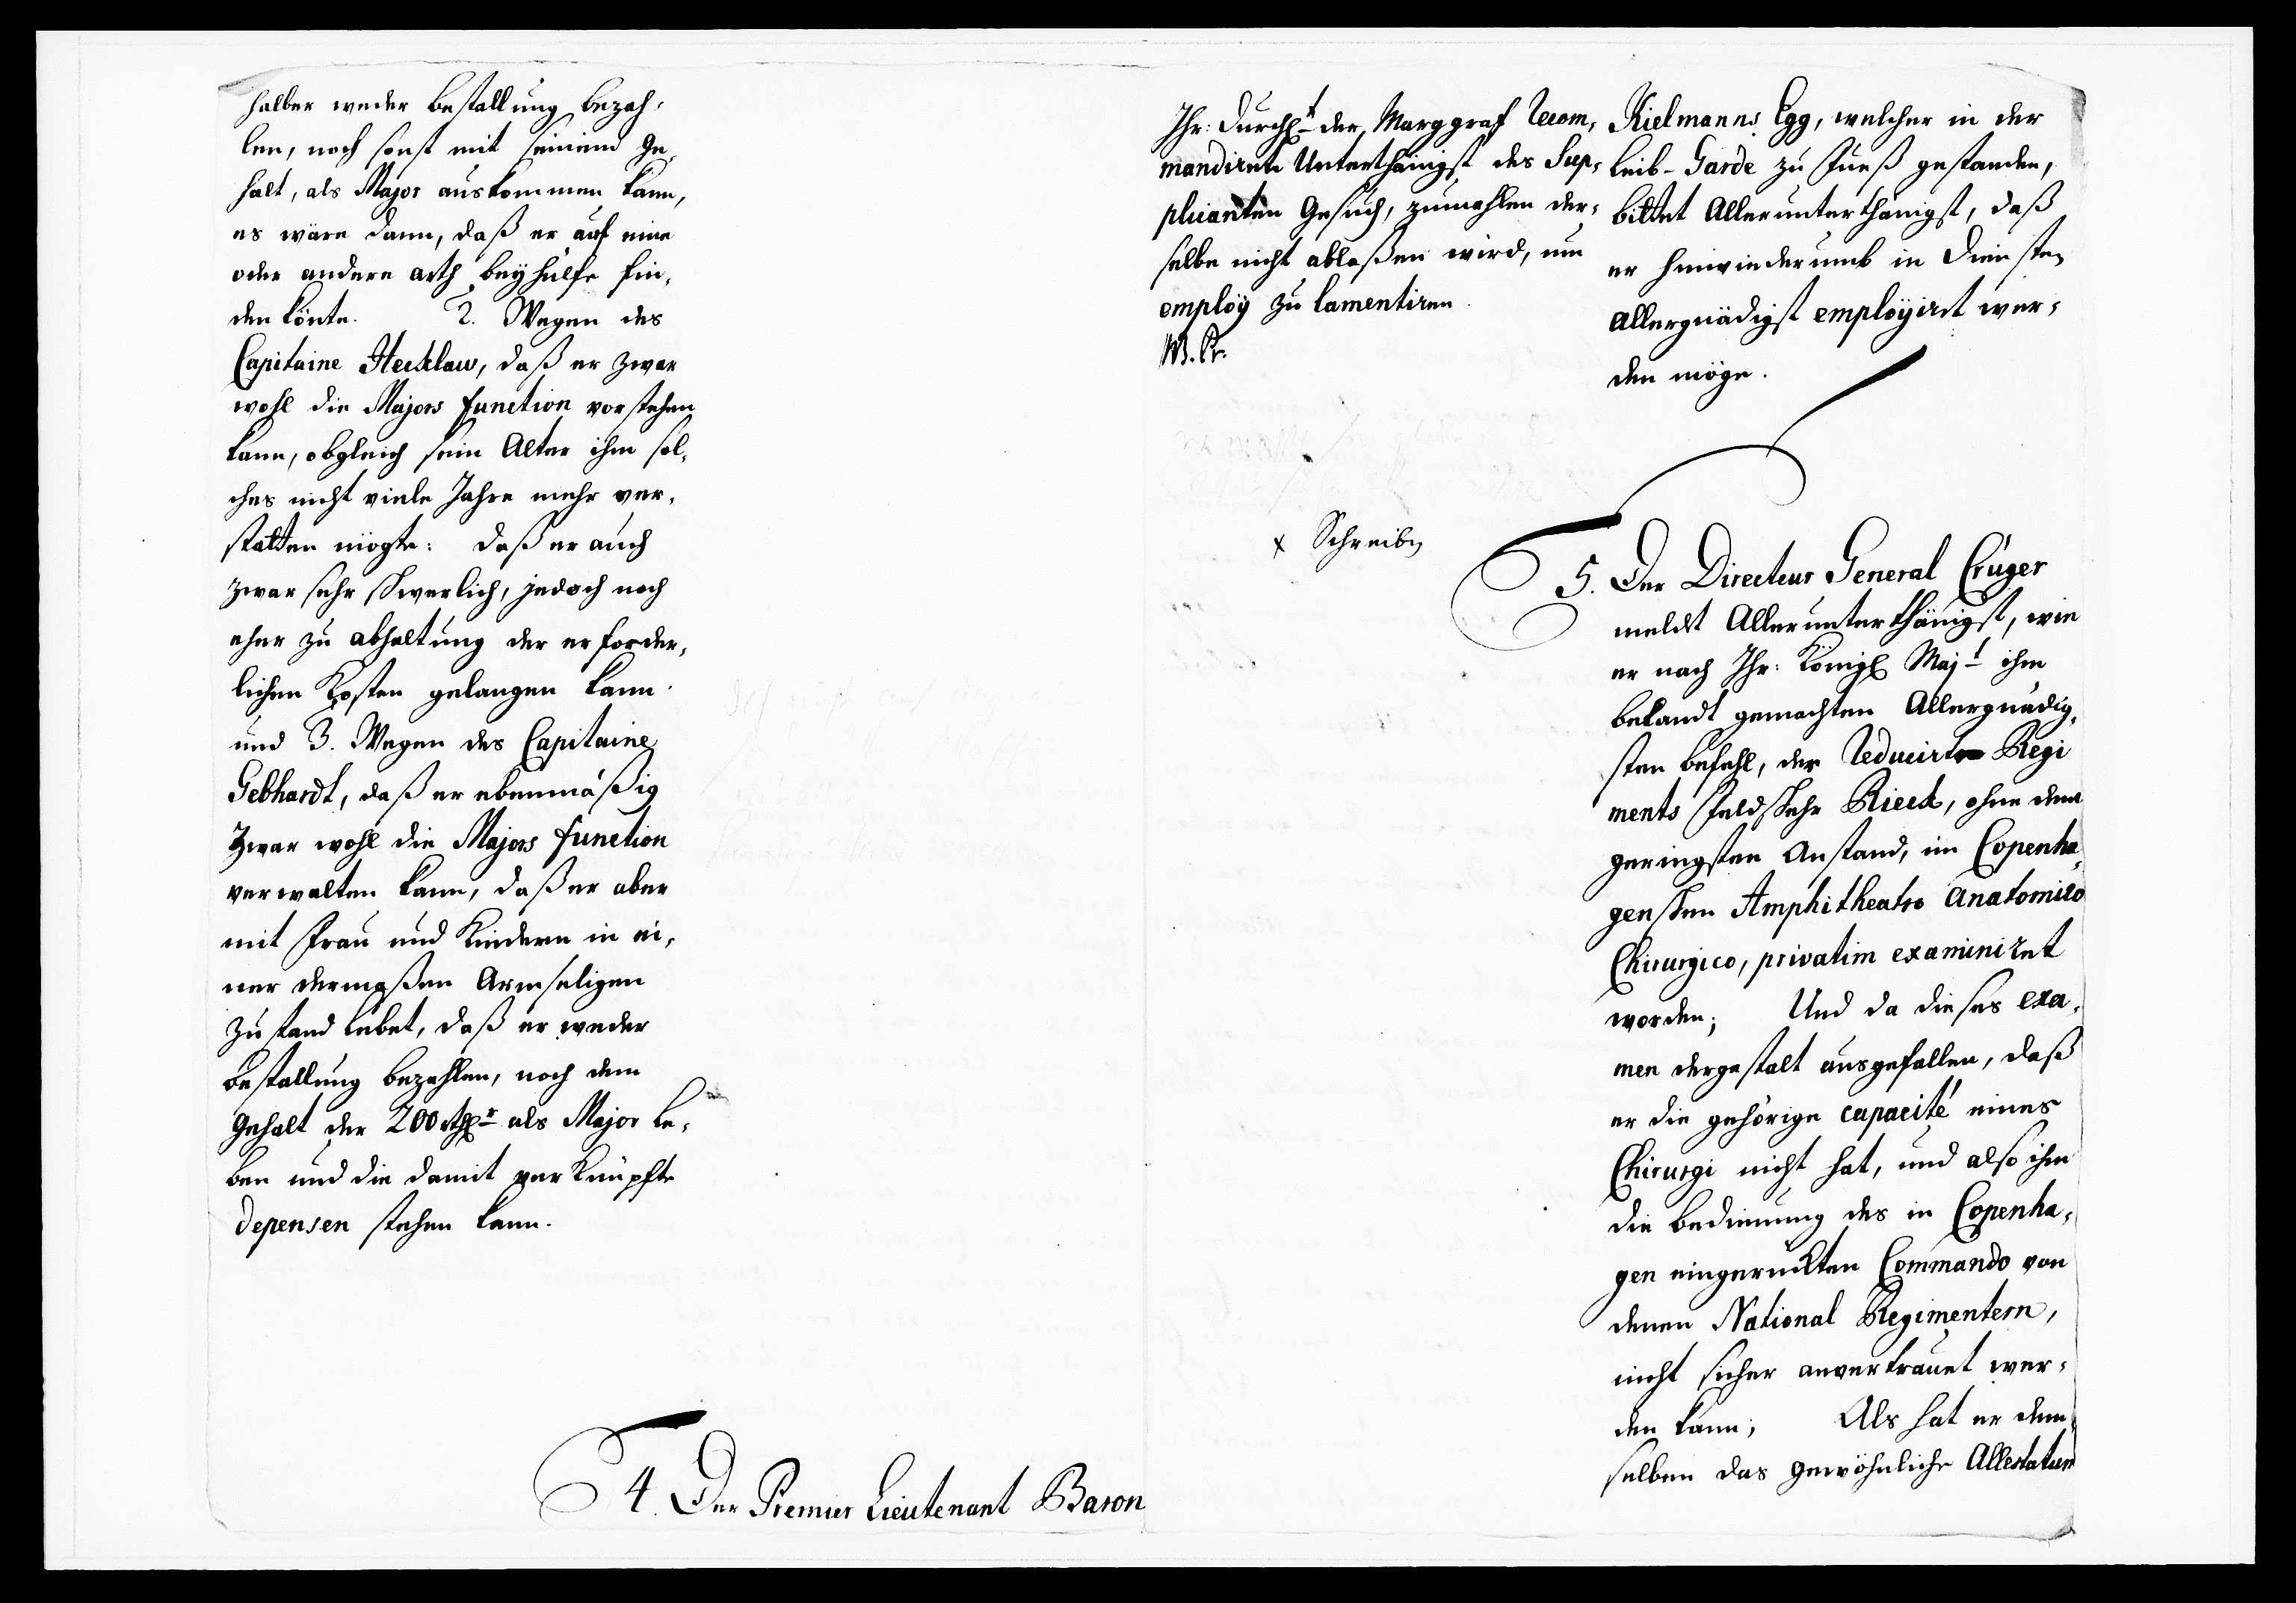 halber weder bestallung bezah-
len, noch sonst mit seinem ge-
halt, als Major auskommen kann,
es wäre dann, daß er auf eine
oder andere arth beyhülfe fin-
den könte. 2. Wegen des
Capitaine Hecklau, daß er zwar
wohl die Majors function vorstehen
kann, obgleich sein Alter ihm sol-
ches nicht viele Jahre mehr ver-
statten mögte: daß er auch
zwar sehr schwerlich, jedoch noch
eher zu abhaltung der erforder-
lichen Kosten gelangen kann.
und 3. Wegen des Capitaine
Gebhardt, daß er ebenmäßig
zwar wohl die Majors function
verwalten kann, daß er aber
mit Frau und Kindern in ei-
ner dermaßen Armseligen
zustand lebet, daß er weder
bestallung bezahlen, noch dem
gehalt der 200 rthlr als Major le-
ben und die damit verknüpfte
depensen stehen kann.
4. Der Premier Lieutenant Baron
Ihr: Durchlt der Marggraf recom-
mandirete Unterthänigst des Sup-
plicanten Gesuch, zumahlen der-
selbe nicht ablaßen wird, um
employ zu lamentiren.
Kielmanns Egg, welcher in der
Leib-Garde zu Fueß gestanden,
bittet Allerunterthänigst, daß
er hinwiederumb in Diensten
Allergnädigst employiret wer-
den möge.
x Schreiben
5. Der Directeur General Crüger
meldet Allerunterthänigst, wie
er nach Ihr: Königl Majt ihm
bekandt gemachten Allergnädig-
sten befehl, der reducirte Regi
ments Feldscher Rieck, ohne dem
geringsten Anstand, im Copenha-
genschen Amphitheatro Anatomico
Chirurgico, privatim examiniret
worden; Und da dieses exa-
men dergestalt ausgefallen, daß
er die gehörige capacité eines
Chirurgi nicht hat, und also ihm
die bedienung des in Copenha-
gen eingerückten Commando von
denen National Regimentern,
nicht sicher anvertrauet wer-
den kann; Als hat er dem-
selben das gewöhnliche Attestatum